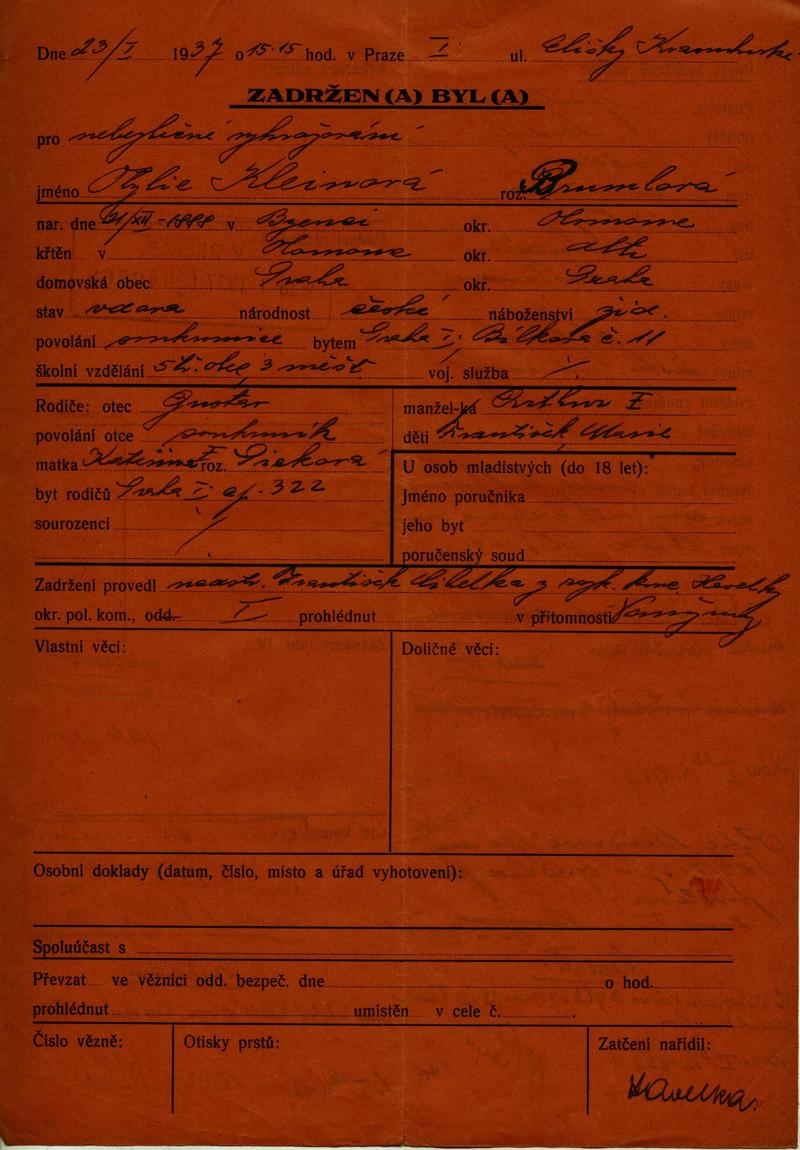 Dne 23/I 1937 o 15·15 hod. v Praze I. ul. Elišky Krásnohorské
ZADRŽEN(A) BYL(A)
pro nebezpečné vyhrožování
jméno Otylie Kleinová roz. Brumlová
nar. dne 21/XII - 1888 v okr. Olomouc
křtěn v Olomouc okr. dtto
domovská obec Praha okr. Praha
stav vdaná národnost české náboženství žid.
povolání soukromnice bytem Praha I., Bílkova č. 11
školní vzdělání 5 tř. obec, 3 měšť. voj. služba /.
Rodiče: otec Gustav
povolání otce soukromník
matka Kateřina roz. Picková
byt rodičů Praha I čp. 322
sourozenci /
manžel-ka Arthur Ž
děti František, Marie
U osob mladistvých (do 18 let):
Jméno poručníka
jeho byt
poručenský soud
Zadržení provedl nadstr. František z rozk. Havelky
okr. pol. kom., odd. I prohlédnut v přítomnosti
Vlastní věci:
Doličné věci:
Osobní doklady (datum, číslo, místo a úřad vyhotovení):
Spoluúčast s
Převzat ve věznici odd. bezpeč. dne o hod.
prohlédnut umístěn v cele č.
Číslo vězně:
Otisky prstů:
Zatčení nařídil:
Havelka